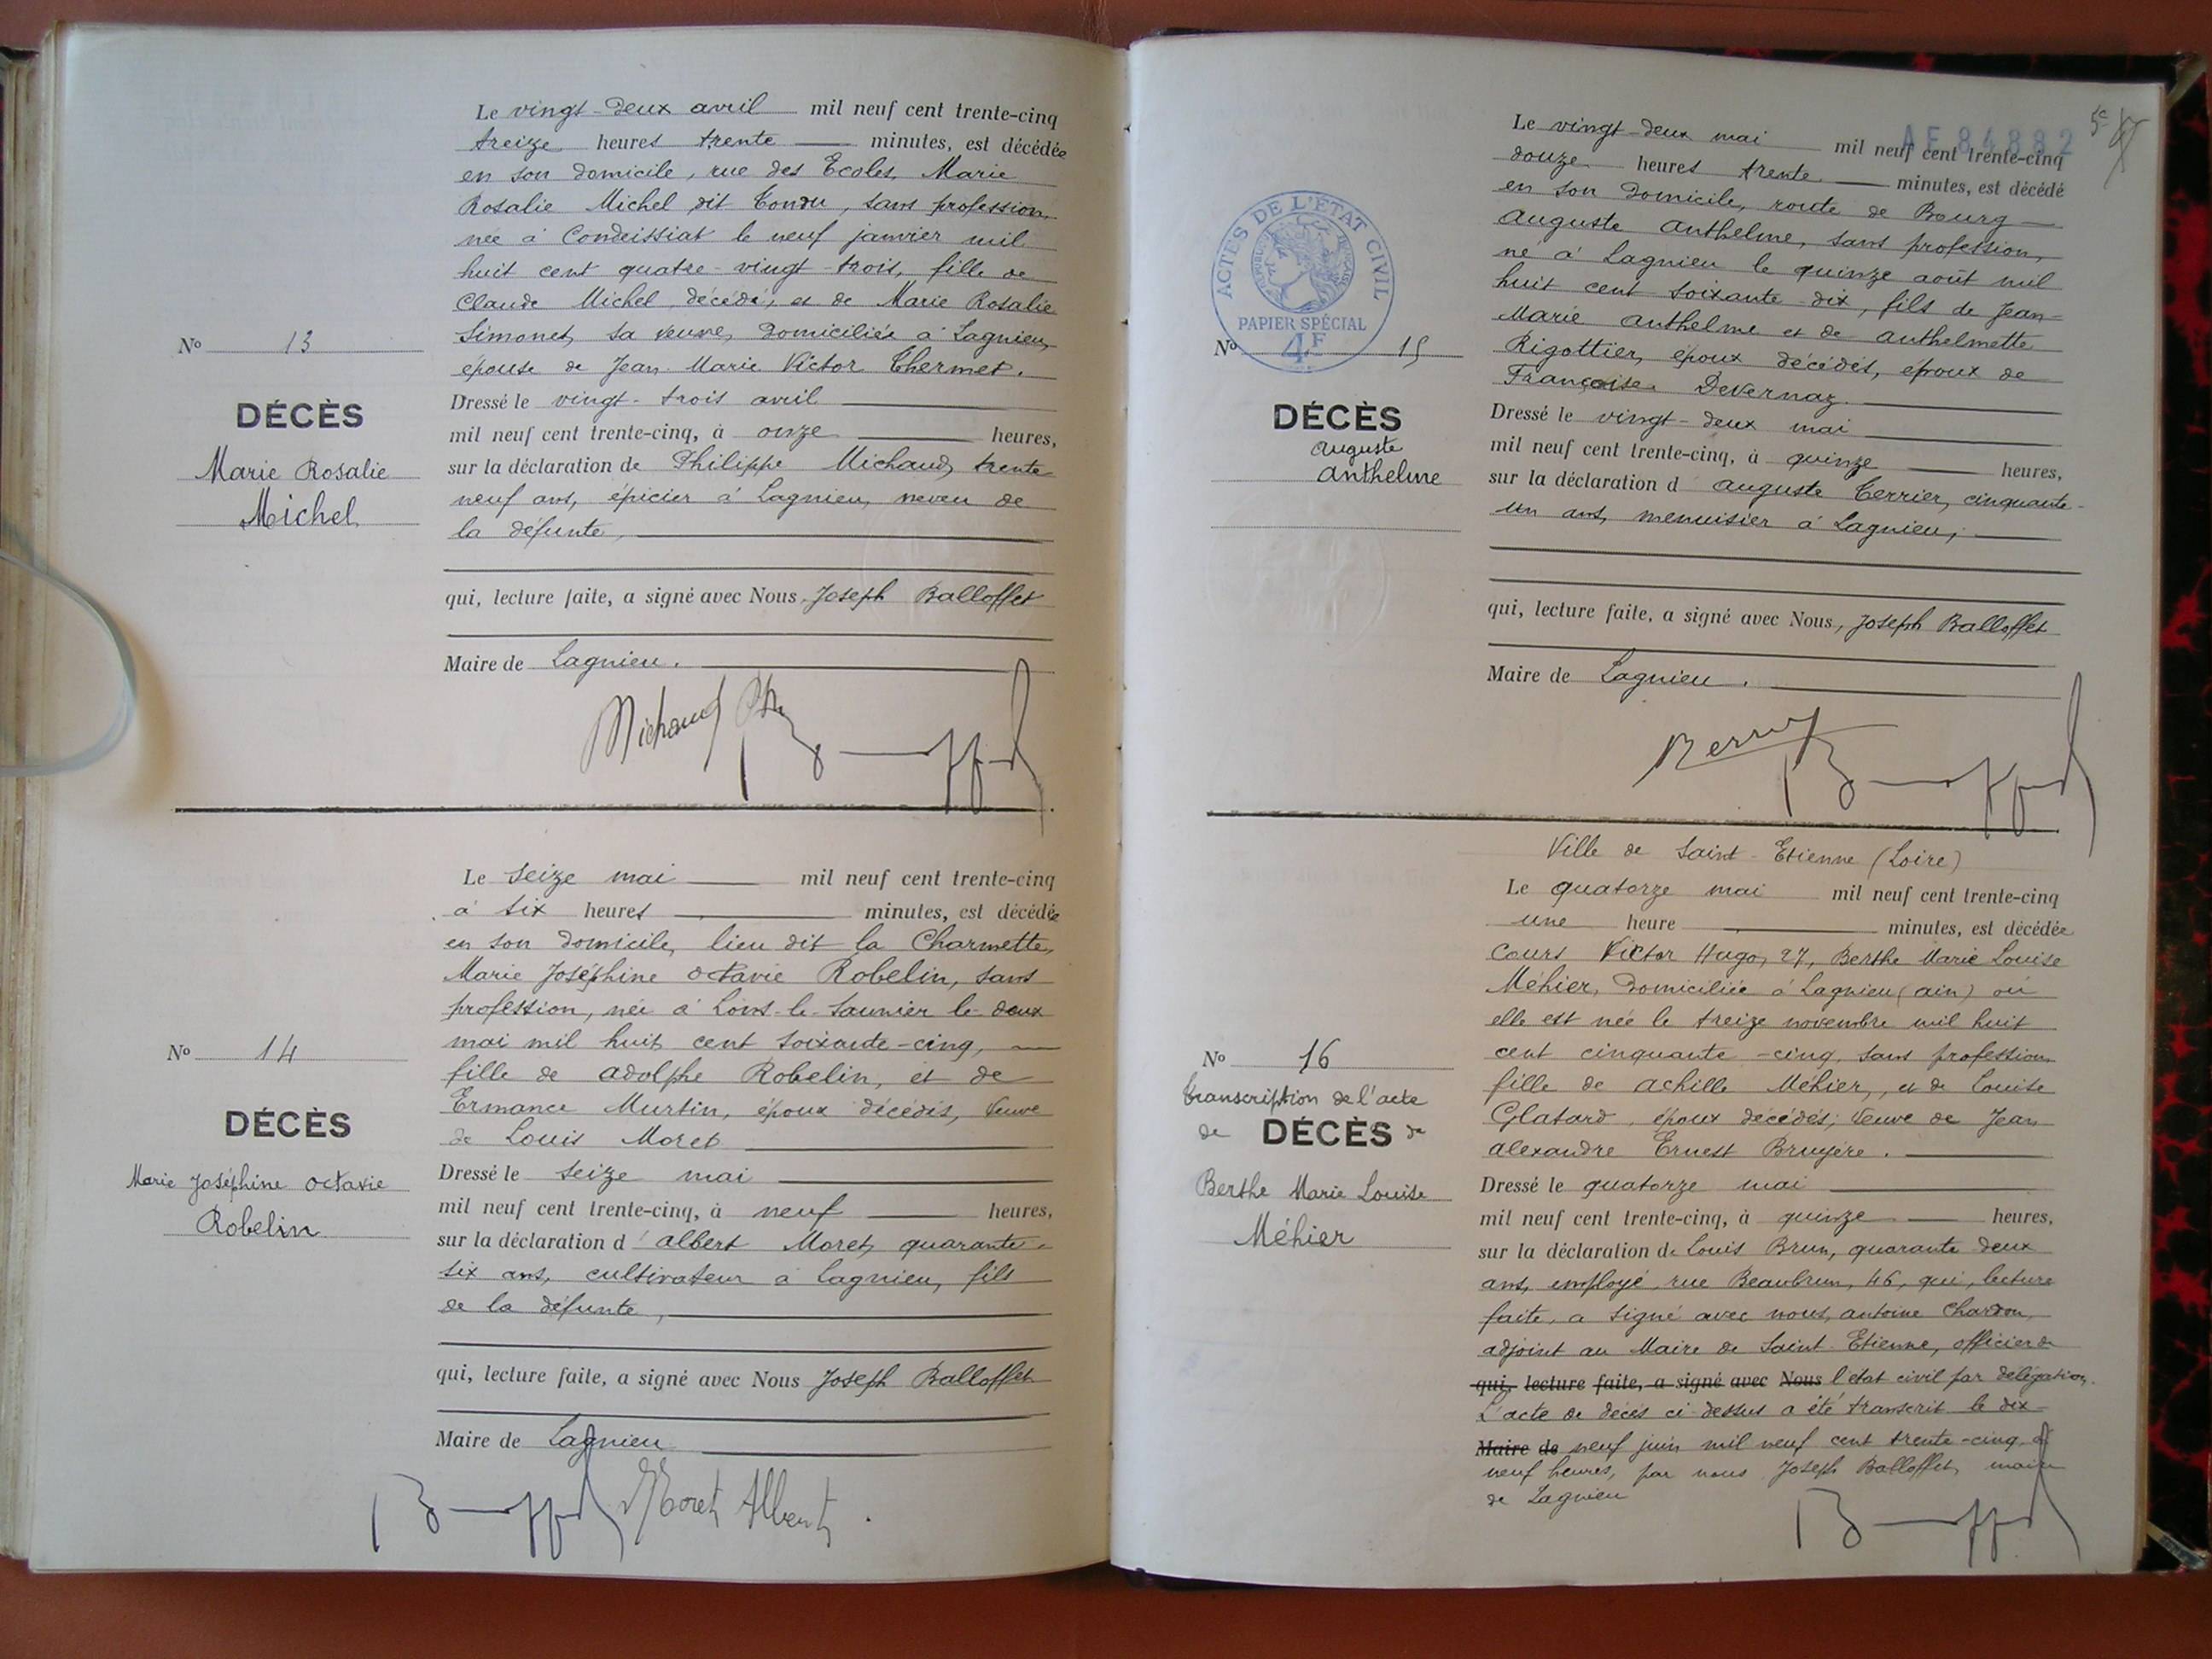 Le vingt-deux avril mil neuf cent trente-cinq
treize heures trente minutes, est décédée
en son domicile, rue des Ecoles, Marie
Rosalie Michel dit Condu, sans profession,
née à Condeissiat le neuf janvier mil
huit cent quatre-vingt-trois, fille de
Claude Michel, décédé, et de Marie Rosalie
Simonet, sa veuve, domiciliée à Lagnieu,
épouse de Jean Marie Victor Chermet.
Nº 13
DÉCÈS
Marie Rosalie
Michel
Dressé le vingt-trois avril
mil neuf cent trente-cinq, à onze heures,
sur la déclaration de Philippe Michaud, trente
neuf ans, épicier à Lagnieu, neveu de
la défunte,
qui, lecture faite, a signé avec Nous, Joseph Balloffet
Maire de Lagnieu.
Michaud Ph
Le seize mai mil neuf cent trente-cinq
à six heures minutes, est décédée
en son domicile, lieu dit la Charmette,
Marie Joséphine Octavie Robelin, sans
profession, née à Lons-le-Saunier le deux
mai mil huit cent soixante-cinq,
fille de Adolphe Robelin, et de
Ermance Murtin, époux décédés, veuve
de Louis Moret
Nº 14
DÉCÈS
Marie Joséphine Octavie
Robelin
Dressé le seize mai
mil neuf cent trente-cinq, à neuf heures,
sur la déclaration d'Albert Moret, quarante-
six ans, cultivateur à Lagnieu, fils
de la défunte,
qui, lecture faite, a signé avec Nous Joseph Balloffet
Maire de Lagnieu
Moret Albert
AE 84882
Le vingt-deux mai mil neuf cent trente-cinq
douze heures trente minutes, est décédé
en son domicile, route de Bourg
Auguste Anthelme, sans profession,
né à Lagnieu le quinze août mil
huit cent soixante-dix, fils de Jean-
Marie Anthelme et de Anthelmette
Rigottier, époux décédés, époux de
Françoise Devernay.
ACTES DE L'ÉTAT CIVIL
PAPIER SPÉCIAL
4F
Nº 15
DÉCÈS
Auguste
Anthelme
Dressé le vingt-deux mai
mil neuf cent trente-cinq, à quinze heures,
sur la déclaration d'Auguste Terrier, cinquante-
un ans, menuisier à Lagnieu,
qui, lecture faite, a signé avec Nous, Joseph Balloffet
Maire de Lagnieu.
Ville de Saint-Etienne (Loire)
Le quatorze mai mil neuf cent trente-cinq
une heure minutes, est décédée
Cours Victor Hugo, 27, Berthe Marie Louise
Méhier, domiciliée à Lagnieu (Ain) où
elle est née le treize novembre mil huit
cent cinquante-cinq, sans profession
fille de Achille Méhier, et de Louise
Glatard, époux décédés; veuve de Jean
Alexandre Ernest Bruyère.
Nº 16
Transcription de l'acte
de DÉCÈS de
Berthe Marie Louise
Méhier
Dressé le quatorze mai
mil neuf cent trente-cinq, à quinze heures,
sur la déclaration de Louis Brun, quarante deux
ans, employé, rue Beaubrun, 46, qui, lecture
faite, a signé avec nous, Antoine Chardon,
adjoint au Maire de Saint-Etienne, officier de
qui, lecture faite, a signé avec Nous l'état civil par délégation.
L'acte de décès ci-dessus a été transcrit le dix-
Maire de neuf juin mil neuf cent trente-cinq, à
neuf heures, par nous Joseph Balloffet, maire
de Lagnieu